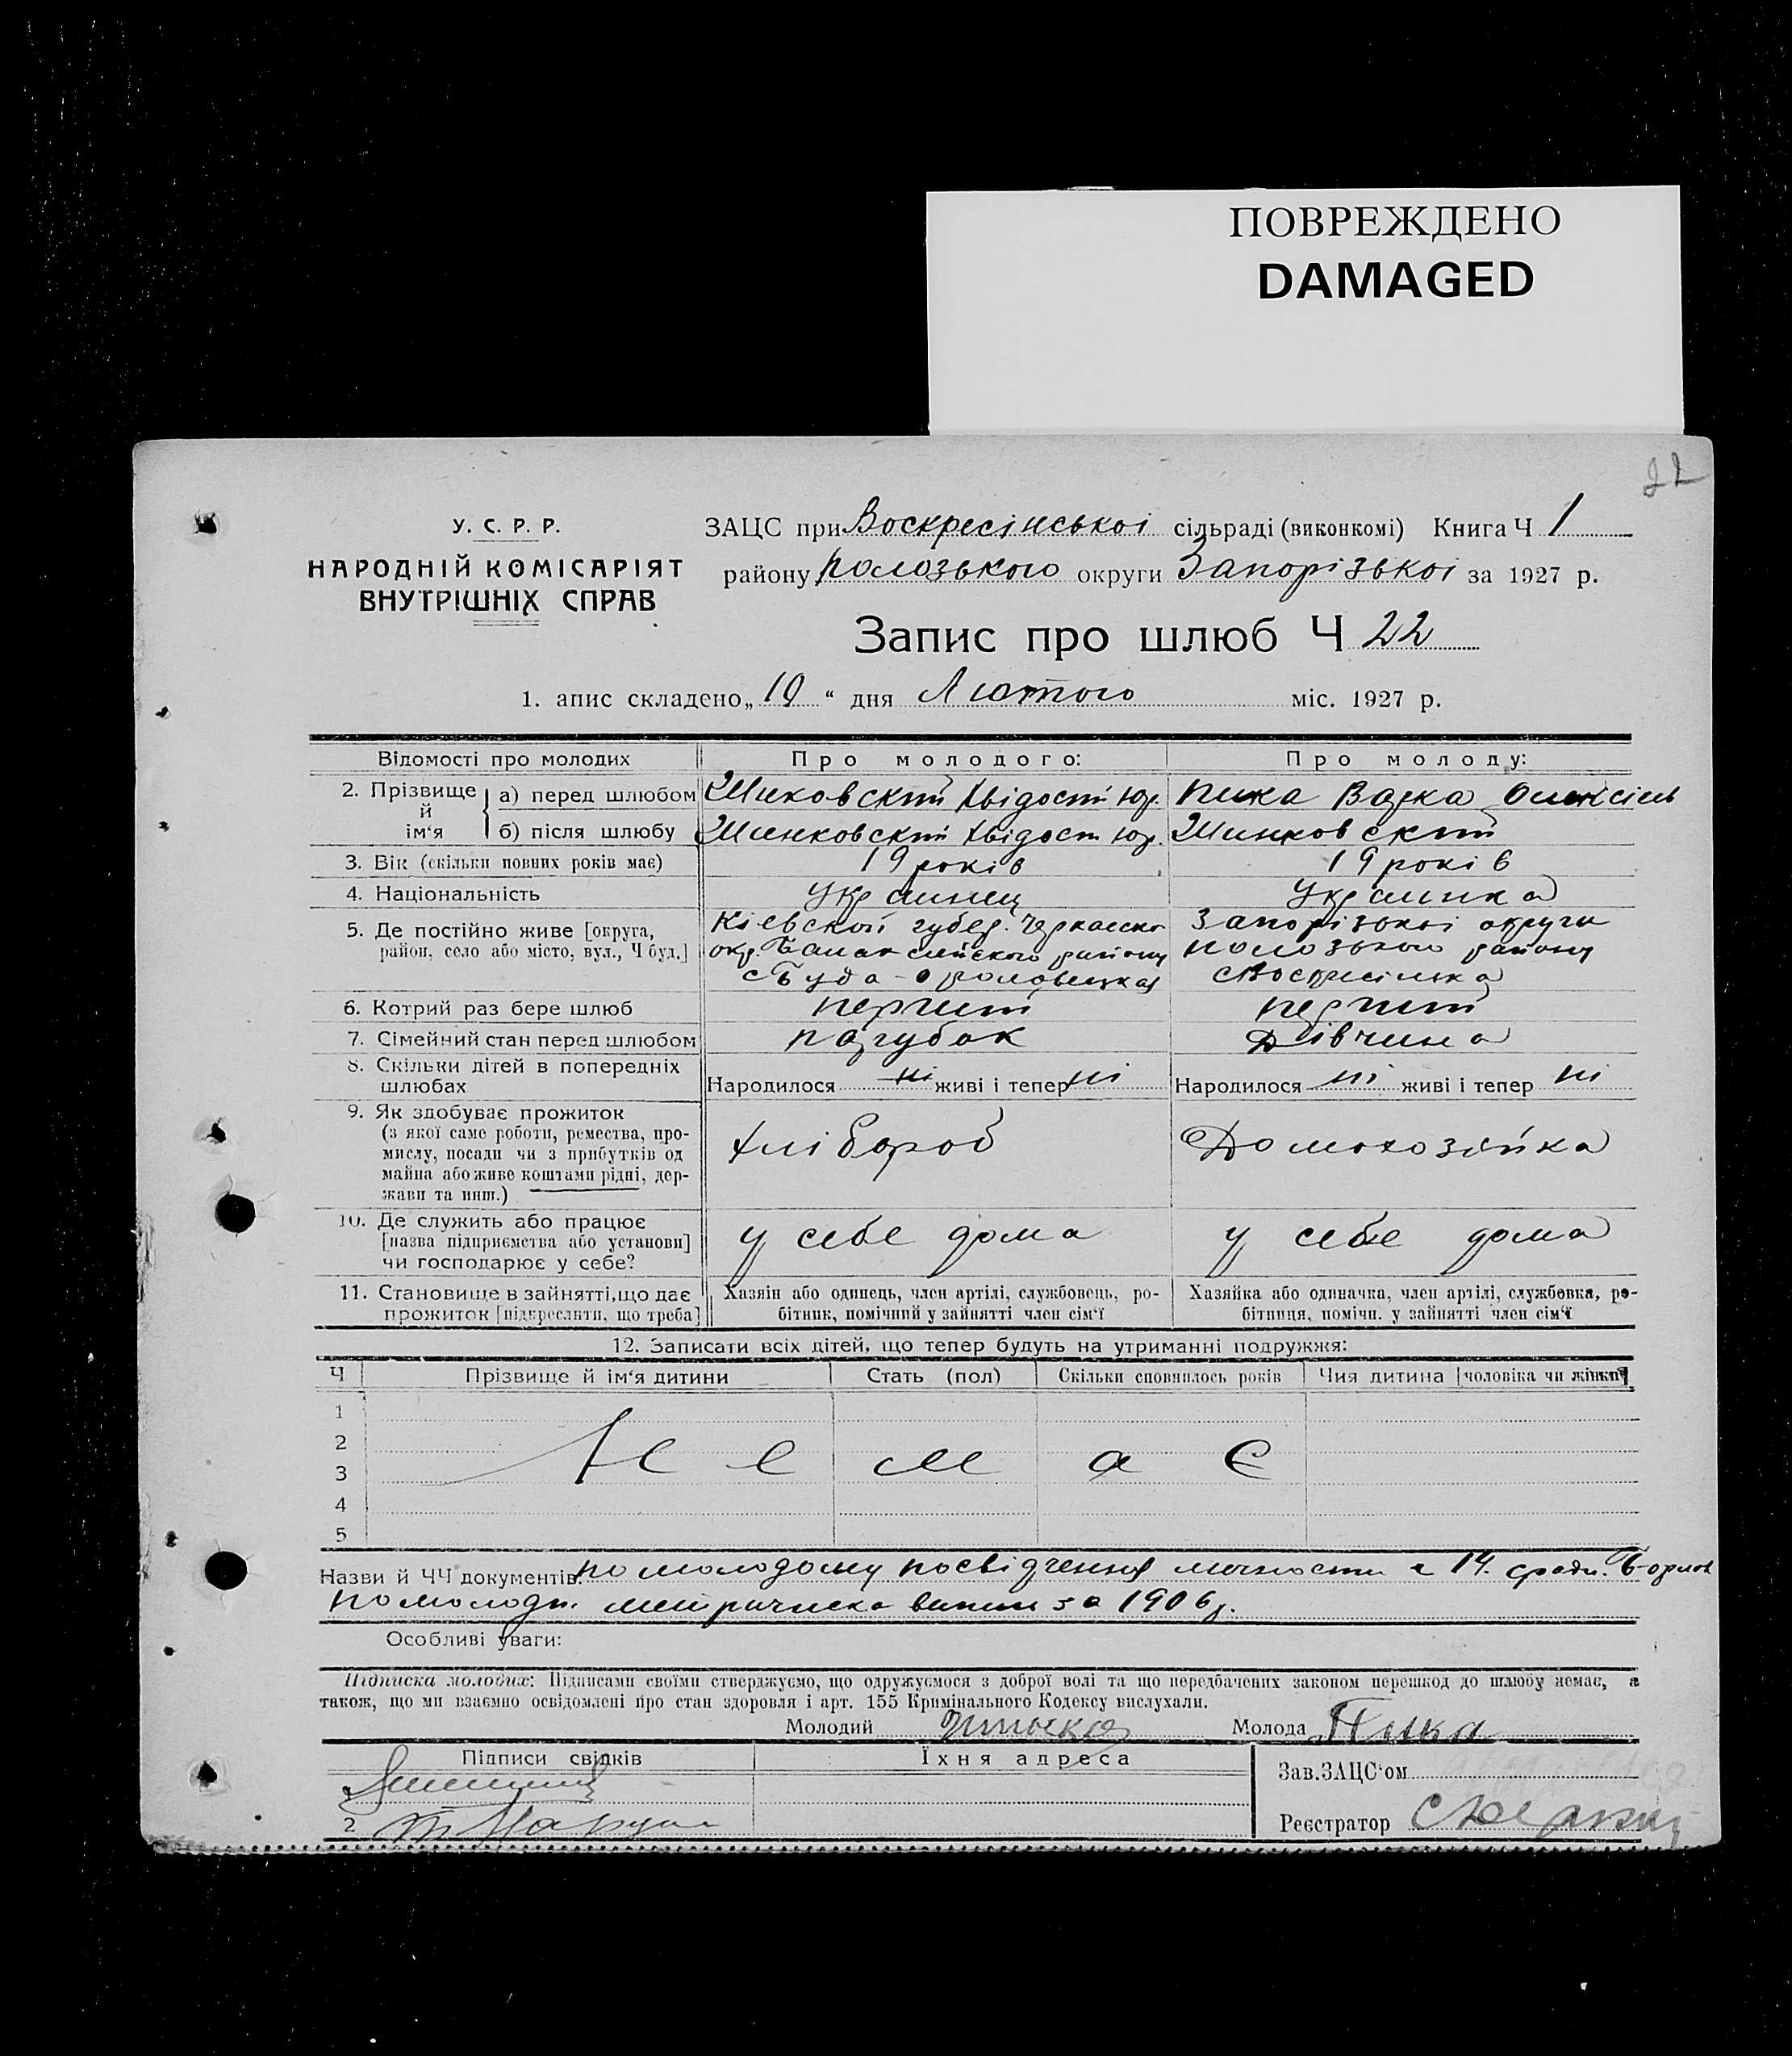 ПОВРЕЖДЕНО
DAMAGED
22
У. С. Р. Р.
НАРОДНІЙ КОМІСАРІЯТ
ВНУТРІШНІХ СПРАВ
ЗАЦС при Воскресінськоі сільраді (виконкомі) Книга Ч 1
району Полозького округи Запорізькоі за 1927 р.
Запис про шлюб Ч 22
1. апис складено „ 10 “ дня Лютого міс. 1927 р.
Відомості про молодих
Про молодого:
Про молоду:
2. Прізвище й ім‘я
а) перед шлюбом
Шиковский Хвідост Юр.
Пика Варка
б) після шлюбу
Шинковский Хвідост Юр.
Шинковский
3. Вік (скільки повних років має)
19 років
19 років
4. Національність
Украинец
Украинка
5. Де постійно живе [округа,
район, село або місто, вул., Ч буд.]
Кіевской губер. Черкасско
окр. району
с Буда-Орловецкая
Запорізькоі округи
Полозького району
с Воскресінка
6. Котрий раз бере шлюб
перчий
перчий
7. Сімейний стан перед шлюбом
парубок
Дівчина
8. Скільки дітей в попередніх
шлюбах
Народилося ні живі і тепер ні
Народилося ні живі і тепер ні
9. Як здобуває прожиток
(з якої саме роботи, ремества, про-
мислу, посади чи з прибутків од
майна або живе коштами рідні, дер-
жави та инш.)
Хлібороб
Домохозяйка
10. Де служить або працює
[назва підприємства або установи]
чи господарює у себе?
у себе дома
у себе дома
11. Становище в зайнятті, що дає
прожиток [підкреслити, що треба]
Хазяін або одинець, член артілі, службовець, ро-
бітник, помічний у зайнятті член сім‘ї
Хазяйка або одиначка, член артілі, службовка, ро-
бітниця, помічн. у зайнятті член сім‘ї
12. Записати всіх дітей, що тепер будуть на утриманні подружжя:
Ч Прізвище й ім‘я дитини Стать (пол) Скільки сповнилось років Чия дитина [чоловіка чи жінки]
1
2
3
4
5
Немає
Назви й ЧЧ документів: по молодому посвідчення личности 14.
по молоди. метрическа випис за 1906 р.
Особливі уваги:
Підписка молодих: Підписами своїми стверджуємо, що одружуємося з доброї волі та що передбачених законом перешкод до шлюбу немає, а
також, що ми взаємно освідомлені про стан здоровля і арт. 155 Кримінального Кодексу вислухали.
Молодий
Молода Пика
Підписи свідків
Їхня адреса
2
Зав. ЗАЦС‘ом
Реєстратор